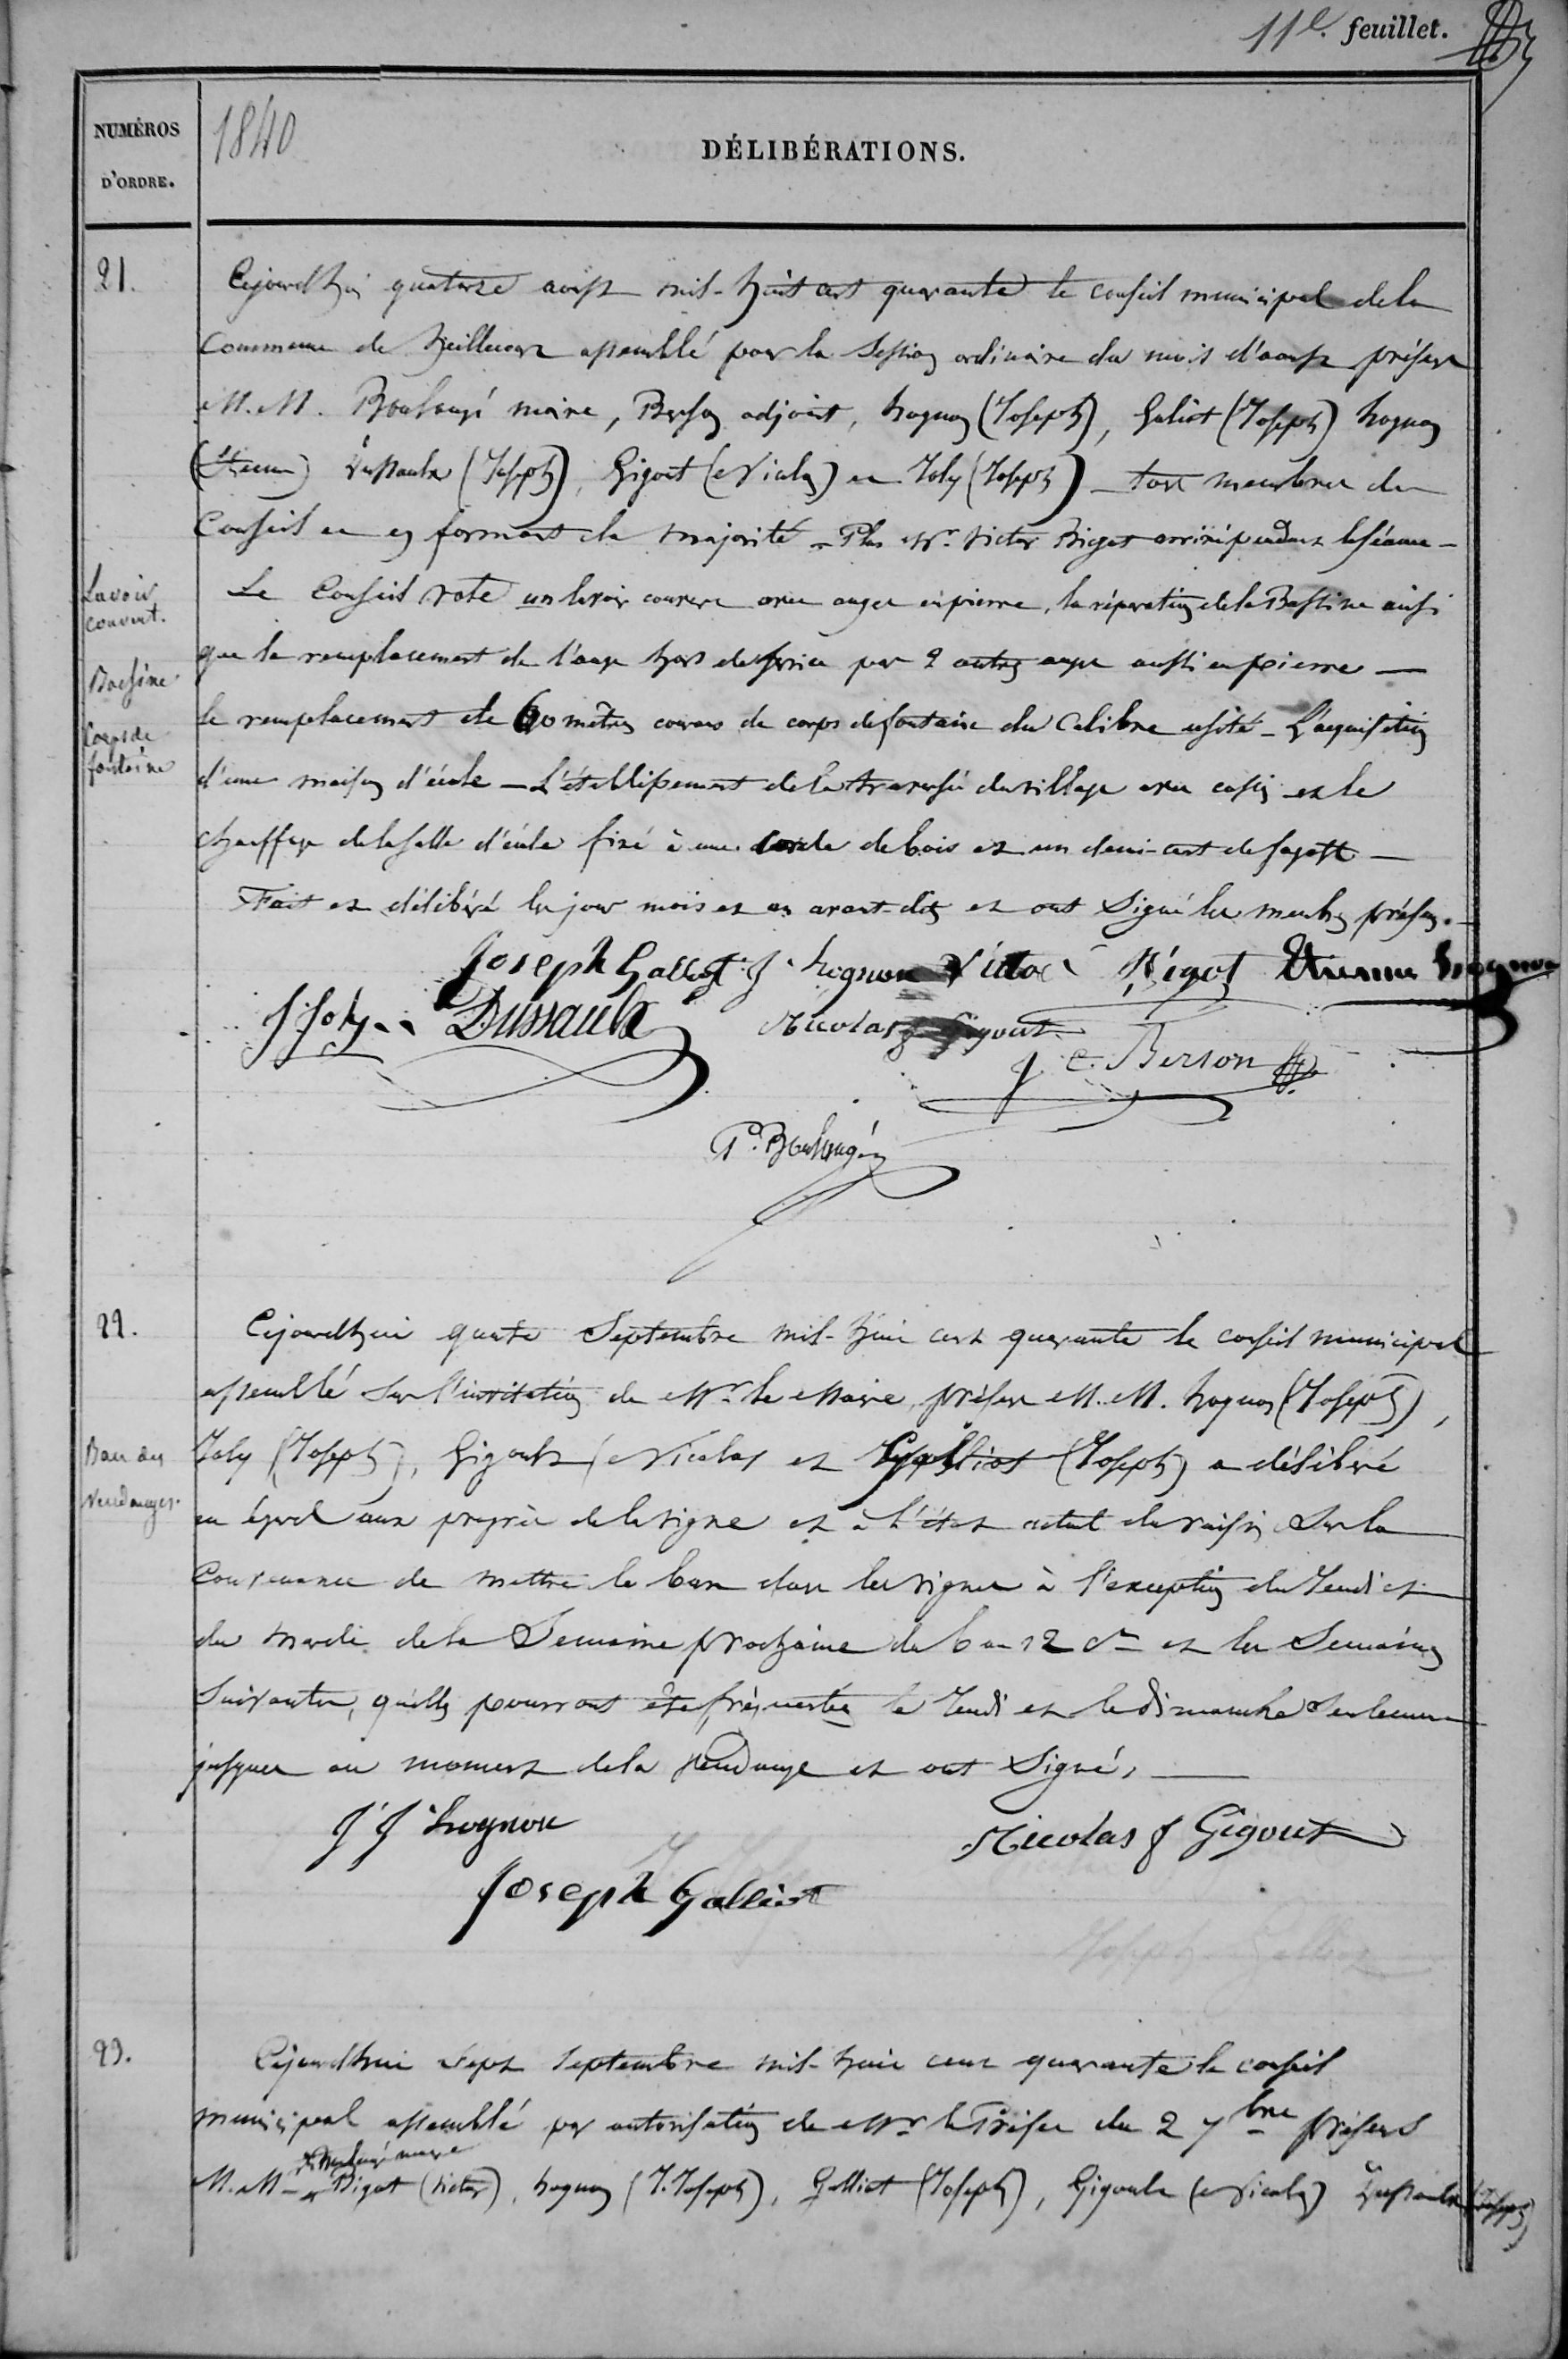 11e. feuillet.
NUMÉROS
D'ORDRE.
1840
DÉLIBÉRATIONS.
21.
Cejourd'hui quatorze aoust mil-huit cent quarante le conseil municipal de la
Commune de heillecourt assemblé pour la Session ordinaire du mois d'aoust présens
M.M. Boulangé maire, Berson adjoint, hognon (Joseph), Galiot (Joseph) hognon
(Etienne) Dussaulx (Joseph), Gigout (Nicolas) et Joly (Joseph) – tous membres du
Conseil et en formant la majorité – Plus Mr. Victor Bigot arrivé pendant la séance –
Lavoir
couvert.
Le Conseil vote un lavoir couvert avec auges en pierre, la réparation de la Bassine ainsi
Bassine
que le remplacement de l'auge hors de service par 2 autres auges aussi en pierre —
Corps de
fontaine
le remplacement de 60 mètres courans de corps de fontaine du Calibre usité – L'acquisition
d'une maison d'école – L'établissement de la traversée du village avec cassis et le
chauffage de la salle d'école fixé à une corde de bois et un demi-cent de fagots —
Fait et délibéré les jour mois et an avant-dits et ont Signé les membres présens.
Joseph Galliot J. hognon Victor Bigot Etienne hognon
J Joly Dussaulx Nicolas J Gigout
J C. Berson
P. Boulangé
22.
Cejourdhui quatre Septembre mil-huit cent quarante le conseil municipal
assemblé Sur l'invitation de Mr le Maire, présens M.M. hognon (Joseph),
Ban des
Vendanges.
Joly (Joseph), Gigoult (Nicolas et Galliot (Joseph) a délibéré
eu égard aux progrès de la vigne et à l'état actuel du raisin Sur la
Convenance de mettre le ban dans les vignes à l'exception du Jeudi et
du mardi de la Semaine prochaine du 6 au 12 Ct et les Semaines
Suivantes, qu'elles pourront être fréquentées le Jeudi et le dimanche Seulement
jusques au moment de la Vendange et ont Signé,
J J hognon
Nicolas J Gigout
Joseph Galliot
Joseph Galliot
23.
Cejourdhui Sept Septembre mil-huit cent quarante le conseil
municipal assemblé par autorisation de Mr le Préfet du 2 7bre présens
Boulangé maire
M.M – Bigot (Victor), hognon (J. Joseph), Galliot (Joseph), Gigoult (Nicolas) Dussaulx (Joseph)